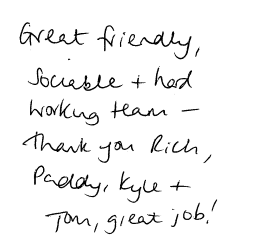 Great friendly,
Sociable + hard
working team –
Thank you Rich,
Paddy, Kyle +
Tom, great job!